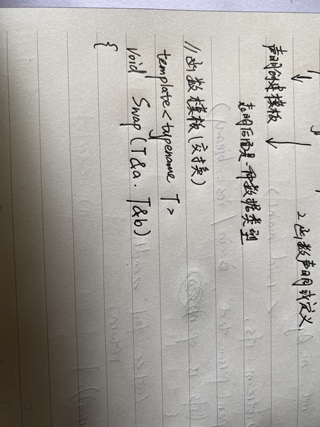 声明创建模板
2.函数声明或定义
表明后面是一种数据类型
//函数模板(交换)
template<typename T>
void Swap(T&a. T&b)
{